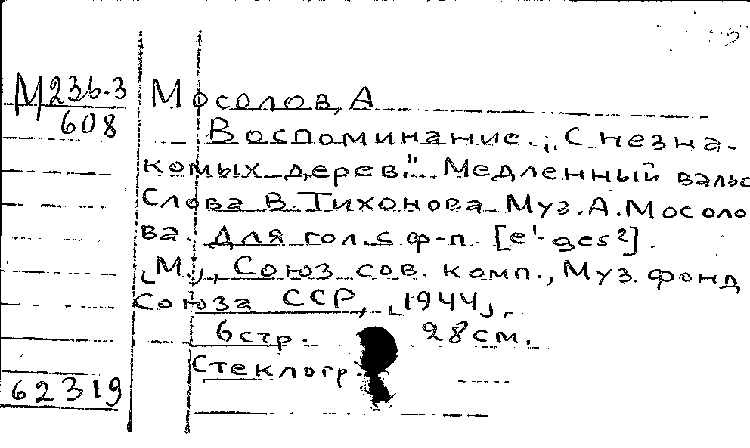 М236-3 Мосолов, А
608 Воспоминание. „С незна-
комых дерев." Медленный вальс
Слова В. Тихонова Муз. А. Мосоло
ва. Для гол. с ф-п. [e¹-ges²].
[М.], Союз сов. комп., Муз. фонд
Союза ССР, [1944].
6 стр. 28 см.
Стеклогр
62319